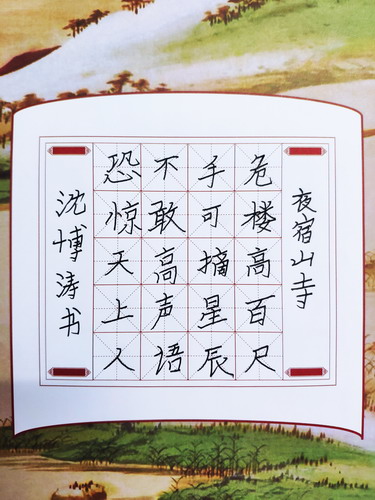 夜宿山寺
危楼高百尺
手可摘星辰
不敢高声语
恐惊天上人
沈博涛书